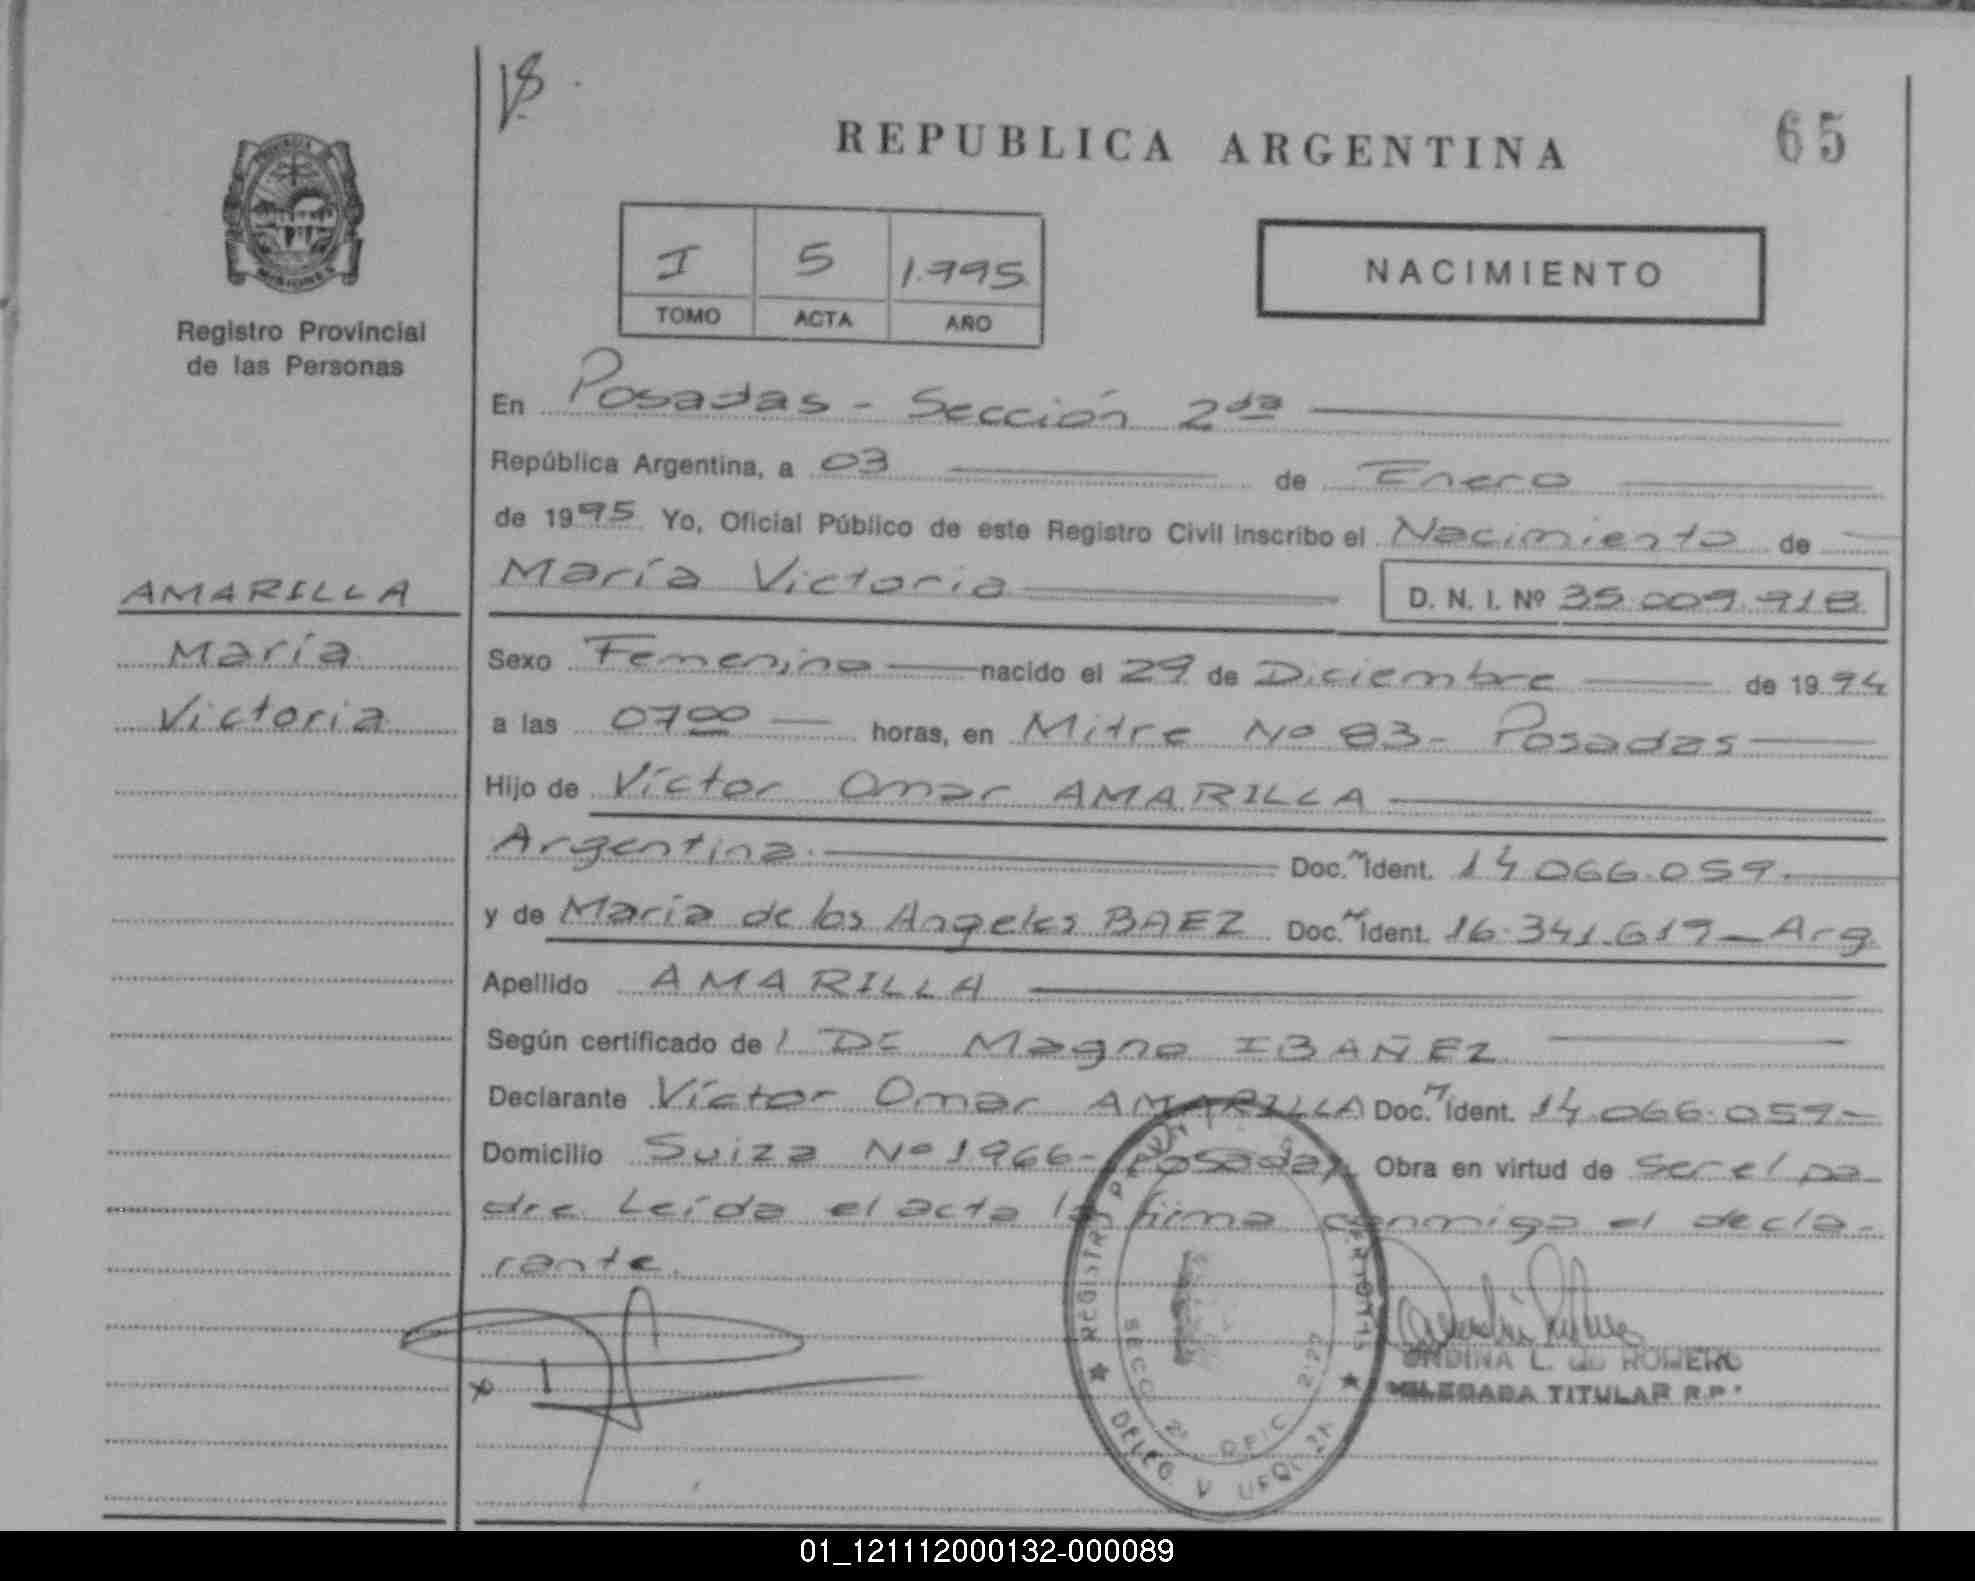 REPUBLICA ARGENTINA
65
I 5 1.995
TOMO ACTA AÑO
NACIMIENTO
Registro Provincial
de las Personas
En Posadas - Sección 2da
República Argentina, a 03 de Enero
de 1995 Yo, Oficial Público de este Registro Civil inscribo el Nacimiento de
María Victoria D. N. I. Nº 35.009.918
AMARILLA
María
Victoria
Sexo Femenino nacido el 29 de Diciembre de 1994
a las 07 00 horas, en Mitre Nº 83- Posadas
Hijo de Víctor Omar AMARILLA
Argentina. Doc. Ident. 14.066.059.
y de María de los Angeles BAEZ Doc. Ident. 16.341.619 - Arg
Apellido AMARILLA
Según certificado de Magno IBAÑEZ
Declarante Víctor Omar AMARILLA Doc. Ident. 14.066.059-
Domicilio Suiza Nº 1966- Posadas Obra en virtud de ser el pa-
dre. Leída el acta la firma conmigo el decla-
rante.
ONDINA L. de ROMERO
DELEGADA TITULAR R.P.
01_121112000132-000089